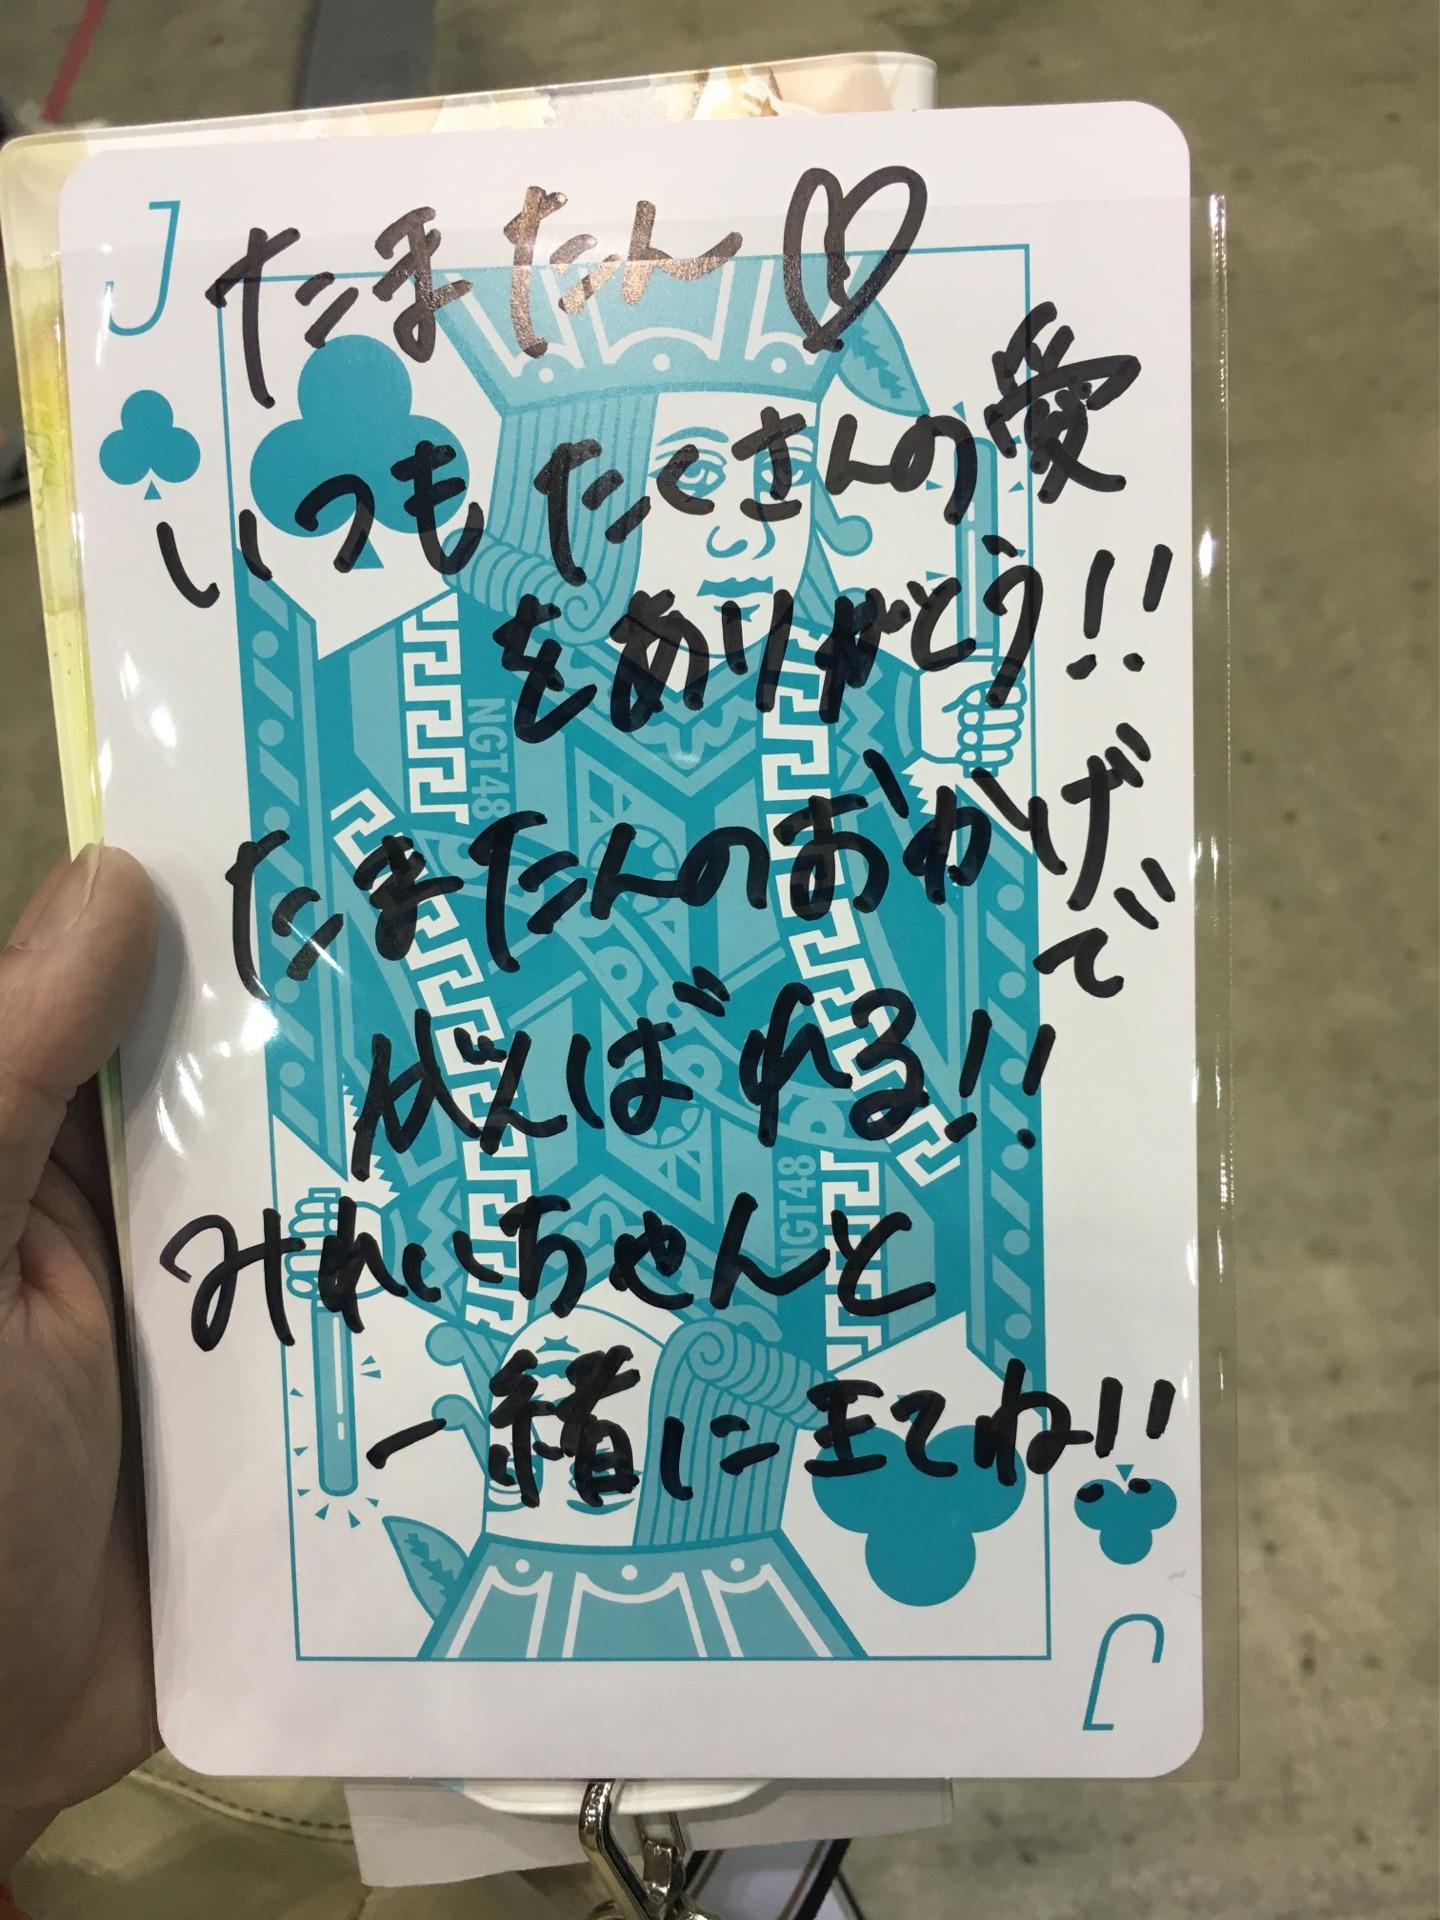 J
たまたん♡
いつもたくさんの愛
をありがとう!!
NGT48
たまたんのおかげで
がんばれる!!
NGT48
みれいちゃんと
一緒に王てね!!
J